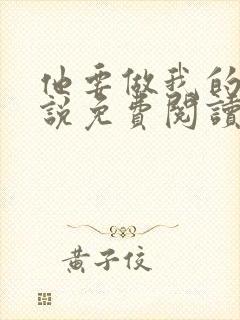 他要做我的
說免費閱讀
黃子佼